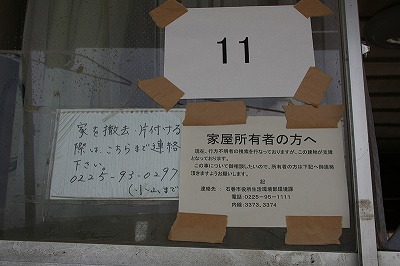 11
家を撤去、片付ける
際は、こちらまで連絡
下さい。
0225-93-0297
(小山まで
家屋所有者の方へ
現在、行方不明者の捜索を行なっておりますが、この建物が支障
となっております。
この事について御相談したいので、所有者の方は下記へ御連絡
頂きますようお願いします。
記
連絡先： 石巻市役所生活環境部環境課
電話：0225-95-1111
内線 3373、3374